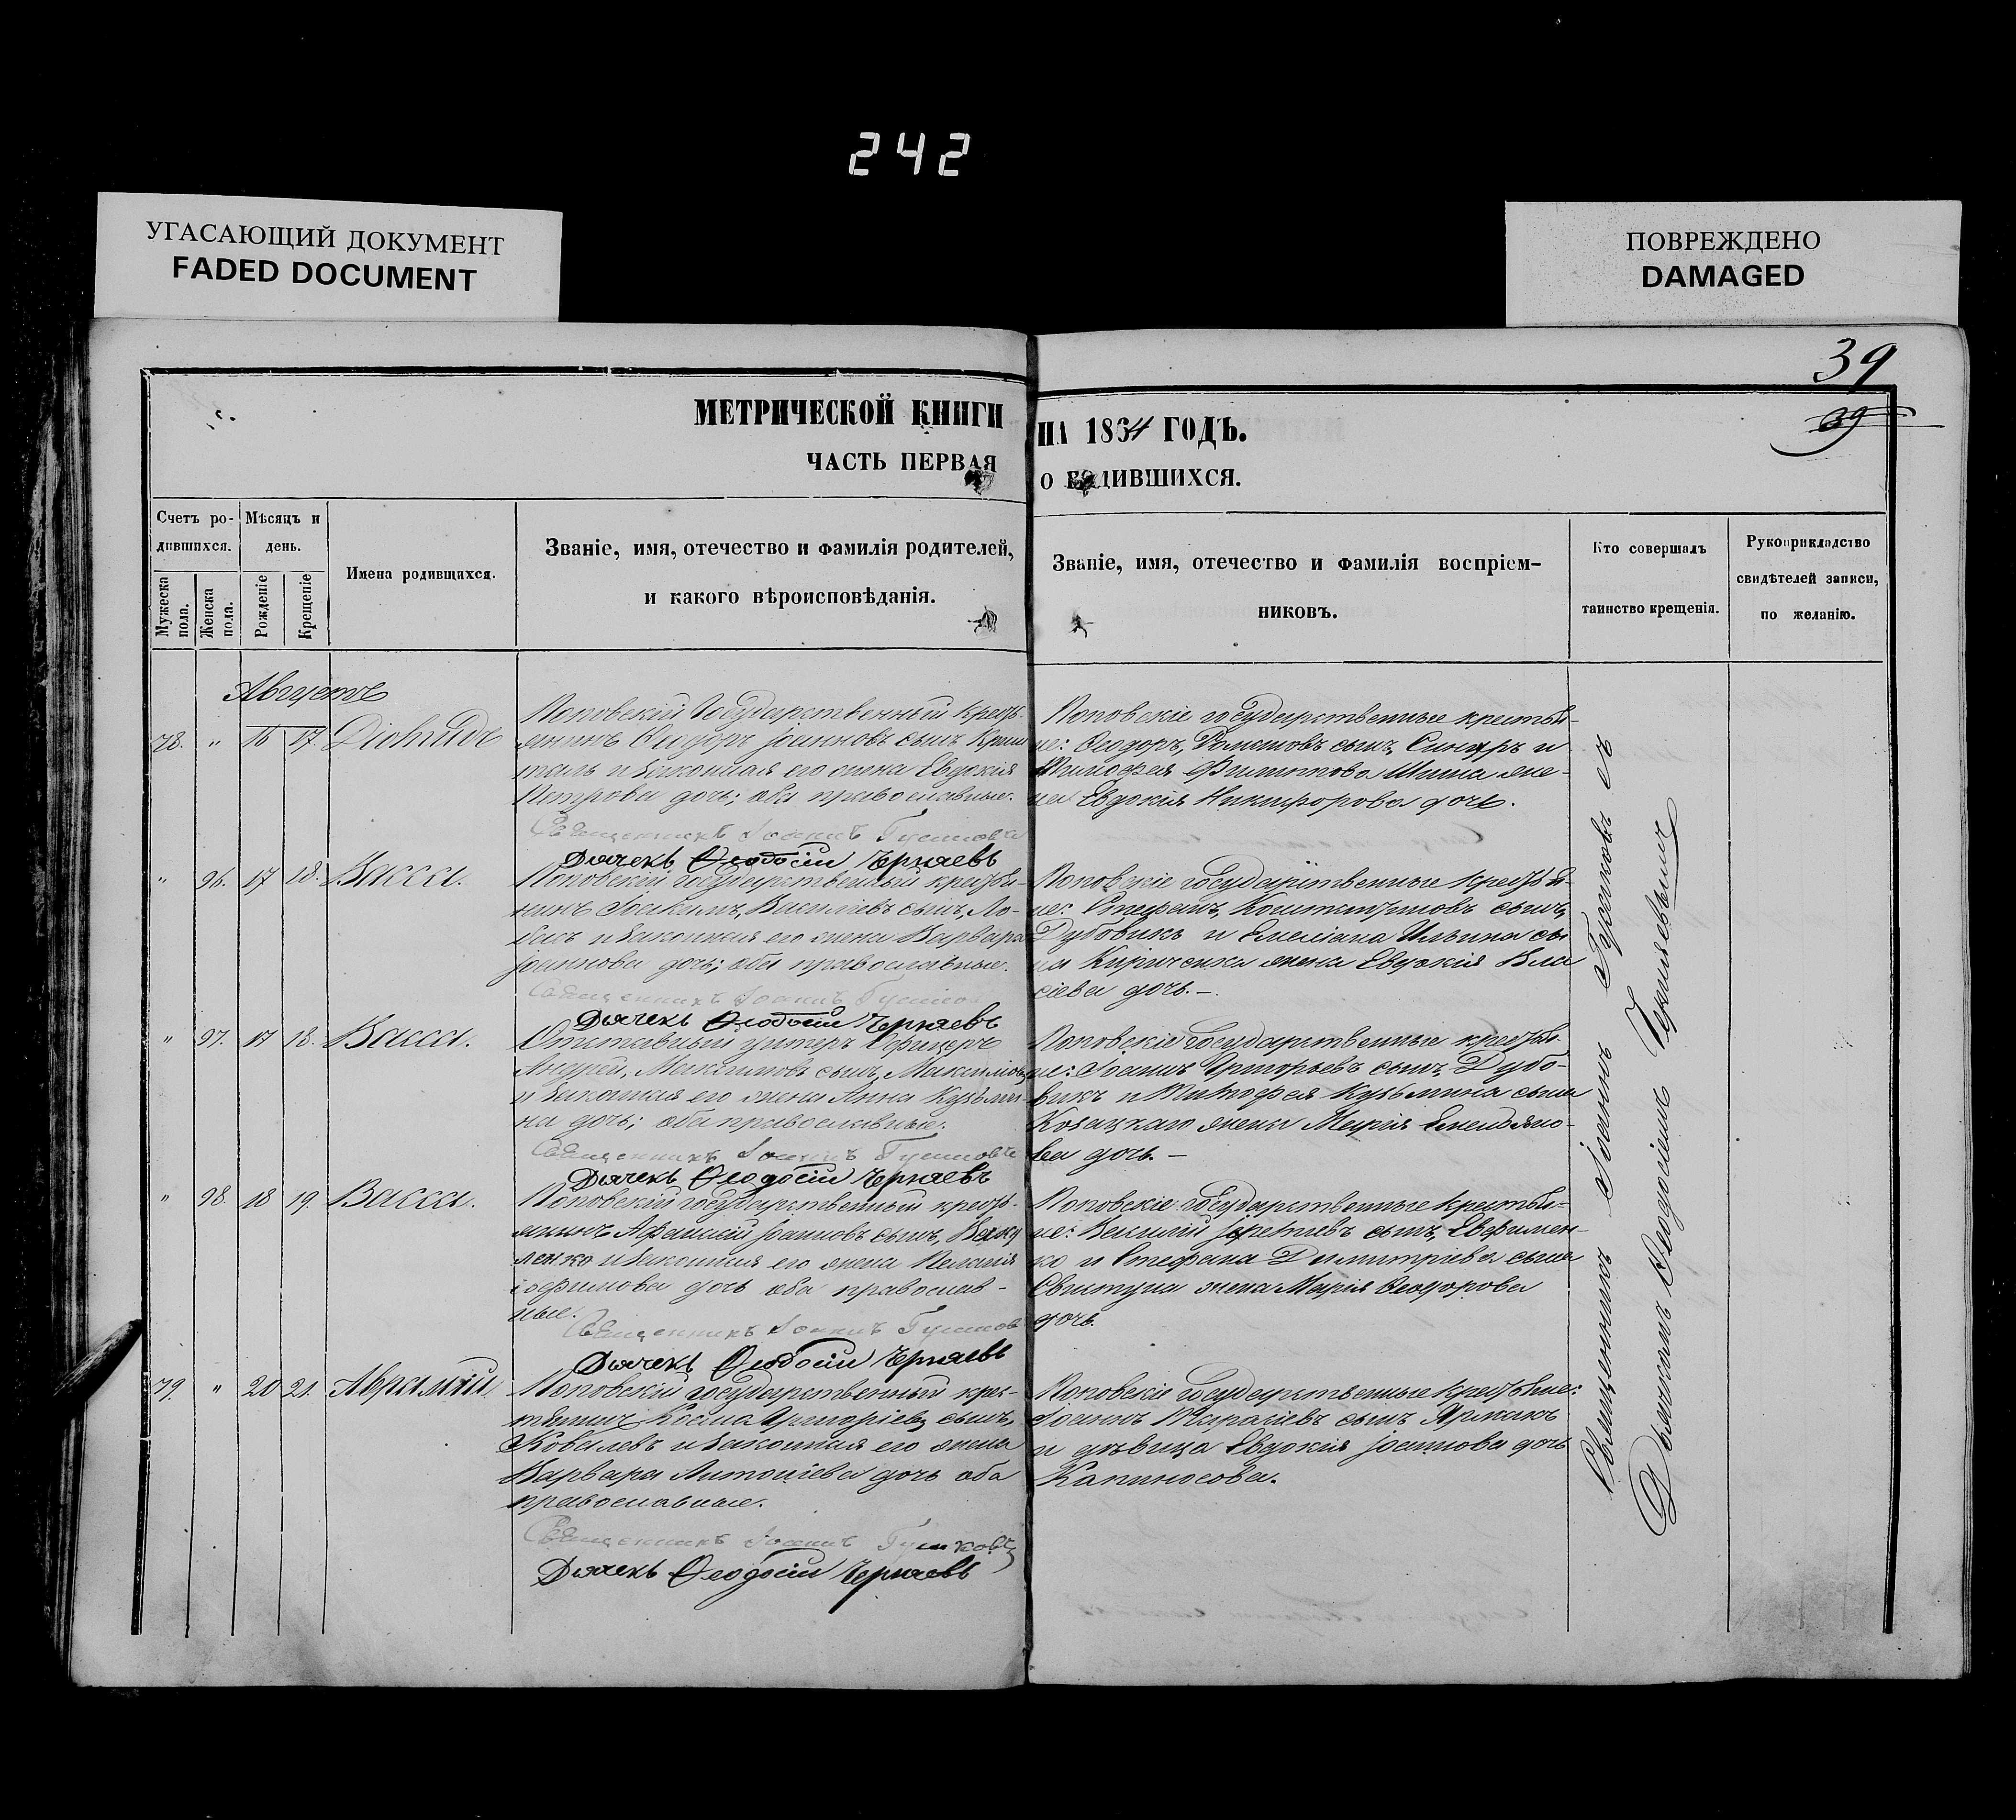 242
УГАСАЮЩИЙ ДОКУМЕНТ
FADED DOCUMENT
ПОВРЕЖДЕНО
DAMAGED
39
39
МЕТРИЧЕСКОЙ КНИГИ
ЧАСТЬ ПЕРВАЯ
НА 1864 ГОДЪ.
О РОДИВШИХСЯ.
Счетъ ро-
дившихся.
Мужеска пола.
Женска пола.
Мѣсяцъ и
день.
Рожденіе
Крещеніе
Имена родившихся.
Званіе, имя, отечество и фамилія родителей,
и какого вѣроисповѣданія.
Званіе, имя, отечество и фамилія воспріем-
никовъ.
Кто совершалъ
таинство крещенія.
Рукоприкладство
свидѣтелей записи,
по желанію.
Августъ
78. " 16 17. Діомидъ
Поповскій Государственный кресть-
янинъ Ѳеодоръ Іоанновъ сынъ
и законная его жена Евдокія
Петрова дочь; оба православные.
Священникъ Іоаннъ Гусаковъ
Дьячекъ Ѳеодосій Черняевъ
Поповскіе государственные крестья-
не: Ѳеодоръ, сынъ, и
Тимоѳея Филиппова же-
на Евдокія Никифорова дочь.
" 96. 17 18. Васса.
Поповскій государственный крестья-
нинъ Іоакимъ, Васильевъ сынъ, Ло-
и законная его жена Варвара
Іоаннова дочь; оба православные.
Священникъ Іоаннъ Гусаковъ
Дьячекъ Ѳеодосій Черняевъ
Поповскіе государственные крестья-
не: Стефанъ, Константиновъ сынъ,
Дубовикъ и Емеліана Ильина сы
на Кириченка жена Евдокія Вла
сіева дочь. —
" 97. 17 18. Васса.
Отставный унтеръ Офицеръ
Андрей, Максимовъ сынъ, Максимовъ
и законная его жена Анна Кузьми-
на дочь; оба православные.
Священникъ Іоаннъ Гусаковъ
Дьячекъ Ѳеодосій Черняевъ
Поповскіе Государственные крестья-
не: Іоаннъ Григорьевъ сынъ Дубо-
викъ и Тимоѳея Кузьмина сына
Козацкаго жена Марія Емельяно-
ва дочь. —
" 98 18 19. Васса.
Поповскій государственный кресть-
янинъ Афанасій Іоанновъ сынъ,
ленко и законная его жена Пелагія
дочь оба православ-
ные.
Священникъ Іоаннъ Гусаковъ
Дьячекъ Ѳеодосій Черняевъ
Поповскіе государственные крестья-
не: Василій сынъ, Евфимен-
ко и Стефана Димитріева сына
Свитуна жена Марія Ѳеодорова
дочь.
79. " 20 21. Аврамій
Поповскій государственный крес-
тьянинъ Косма Григоріевъ сынъ,
Ковалевъ и законная его жена
Варвара Антоніева дочь оба
православные.
Священникъ Іоаннъ Гусаковъ
Дьячекъ Ѳеодосій Черняевъ
Поповскіе Государственные крестьяне:
Іоаннъ Тарасіевъ сынъ Ярмакъ
и дѣвица Евдокія Іоаннова дочь
Капиносова.
Священникъ Іоаннъ Гусаковъ съ
Дьячкомъ Ѳеодосіемъ Черняевымъ